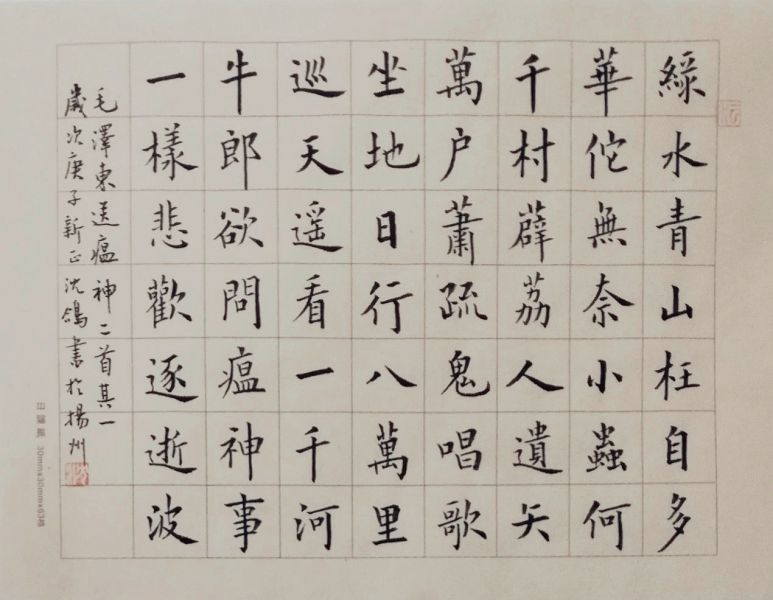 綠水青山枉自多
華佗無奈小蟲何
千村薜荔人遺矢
萬户蕭疏鬼唱歌
坐地日行八萬里
巡天遥看一千河
牛郎欲問瘟神事
一樣悲歡逐逝波
毛澤東送瘟神二首其一
歲次庚子新正沈鴿書於揚州
30mmx30mmx63格